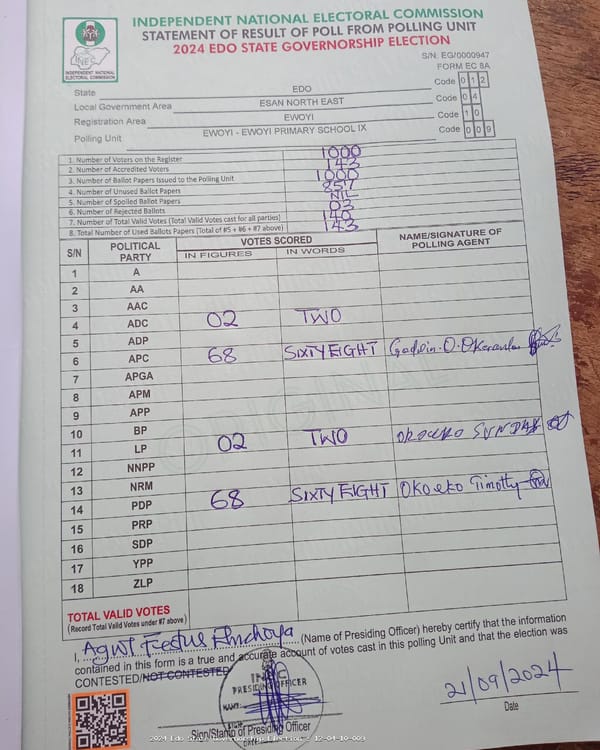 INDEPENDENT NATIONAL ELECTORAL COMMISSION
STATEMENT OF RESULT OF POLL FROM POLLING UNIT
2024 EDO STATE GOVERNORSHIP ELECTION
INEC
INDEPENDENT NATIONAL ELECTORAL COMMISSION
S/N: EG/0000947
FORM EC 8A
State EDO Code 0 1 2
Local Government Area ESAN NORTH EAST Code 0 4
Registration Area EWOYI Code 1 0
Polling Unit EWOYI - EWOYI PRIMARY SCHOOL IX Code 0 0 9
1. Number of Voters on the Register 1000
2. Number of Accredited Voters 143
3. Number of Ballot Papers Issued to the Polling Unit 1000
4. Number of Unused Ballot Papers 857
5. Number of Spoiled Ballot Papers NIL
6. Number of Rejected Ballots 03
7. Number of Total Valid Votes (Total Valid Votes cast for all parties) 140
8. Total Number of Used Ballots Papers (Total of #5 + #6 + #7 above) 143
S/N POLITICAL PARTY VOTES SCORED NAME/SIGNATURE OF POLLING AGENT
IN FIGURES IN WORDS
1 A
2 AA
3 AAC
4 ADC 02 TWO
5 ADP
6 APC 68 SIXTY EIGHT Godwin.O.
7 APGA
8 APM
9 APP
10 BP
11 LP 02 TWO SUNDAY
12 NNPP
13 NRM
14 PDP 68 SIXTY EIGHT Okoeko Timothy
15 PRP
16 SDP
17 YPP
18 ZLP
TOTAL VALID VOTES
(Record Total Valid Votes under #7 above)
I, Agwi Festus (Name of Presiding Officer) hereby certify that the information
contained in this form is a true and accurate account of votes cast in this polling Unit and that the election was
CONTESTED/NOT CONTESTED
INEC
PRESIDING OFFICER
NAME
SIGN
DATE
Sign/Stamp of Presiding Officer
21/09/2024
Date